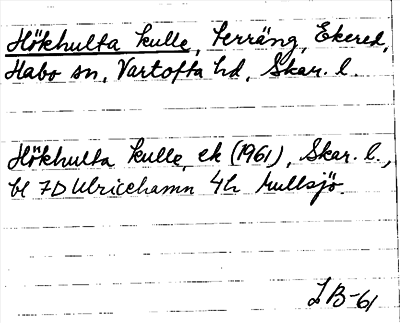 Hökhulta kulle, terräng, Ekered,
Habo sn, Vartofta hd, Skar. l.
Hökhulta kulle, ek (1961), Skar. l.,
bl 7D Ulricehamn 4h Mullsjö.
LB-61